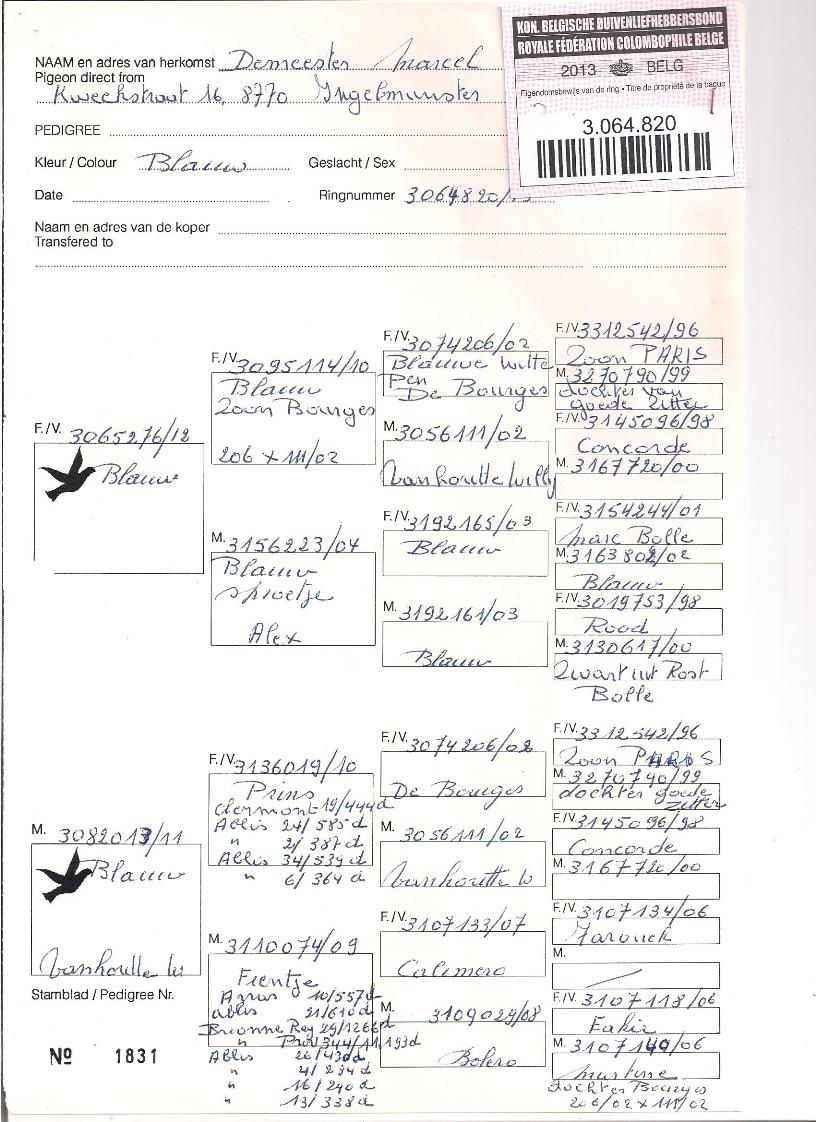 KON. BELGISCHE DUIVENLIEFHEBBERSBOND
ROYALE FÉDÉRATION COLOMBOPHILE BELGE
2013 BELG
Eigendomsbewijs van de ring - Titre de propriété de la bague
3.064.820
NAAM en adres van herkomst Demeester Marcel
Pigeon direct from
Kweekstraat 16, 8770 Ingelmunster
PEDIGREE
Kleur / Colour Blauw Geslacht / Sex
Date Ringnummer 3064820/
Naam en adres van de koper
Transfered to
F./V. 3065276/12
Blauw
F./V. 3095114/10
Blauw
Zoon Bourges
206 x 111/02
M. 3156223/04
Blauw
sproetje
Alex
F./V. 3074206/02
Blauwe witte
Pen
De Bourges
M. 3056111/02
Vanhoutte Willy
F./V. 3192165/03
Blauw
M. 3192161/03
Blauw
F./V. 3312542/96
Zoon PARIS
M. 3270790/99
dochter van
goede zitter
F./V. 3145096/98
Concorde
M. 3167720/00
F./V. 3154244/01
Marc Bolle
M. 3163802/02
Blauw
F./V. 3019753/98
Rood
M. 3130617/00
Zwart uit Rost
Bolle
M. 3082013/11
Blauw
Vanhoutte W
F./V. 3136019/10
Prins
Clermont 19/444d
Ablis 24/585d
" 2/387d
Ablis 34/539d
" 6/364d
M. 3110074/09
Fientje
Arras 10/557d
ablis 21/610d
Brionne Reg 29/1266d
" Prov 344/11,193d
Ablis 26/430d
" 4/234d
" 16/240d
" 13/338d
F./V. 3074206/02
De Bourges
M. 3056111/02
Vanhoutte W
F./V. 3107133/07
Calimero
M. 3109029/08
Bolero
F./V. 3312542/96
Zoon PARIS
M. 3270790/99
dochter goede
zitter
F./V. 3145096/98
Concorde
M. 3167720/00
F./V. 3107134/06
Farouck
M.
F./V. 3107118/06
Fakir
M. 3107140/06
Martine
dochter Bourges
206/02 x 111/02
Stamblad / Pedigree Nr.
Nº 1831